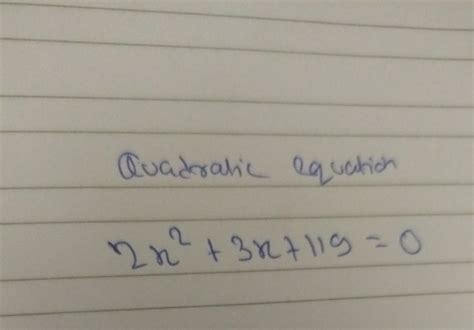 Quadratic equation
2x² + 3x + 119 = 0